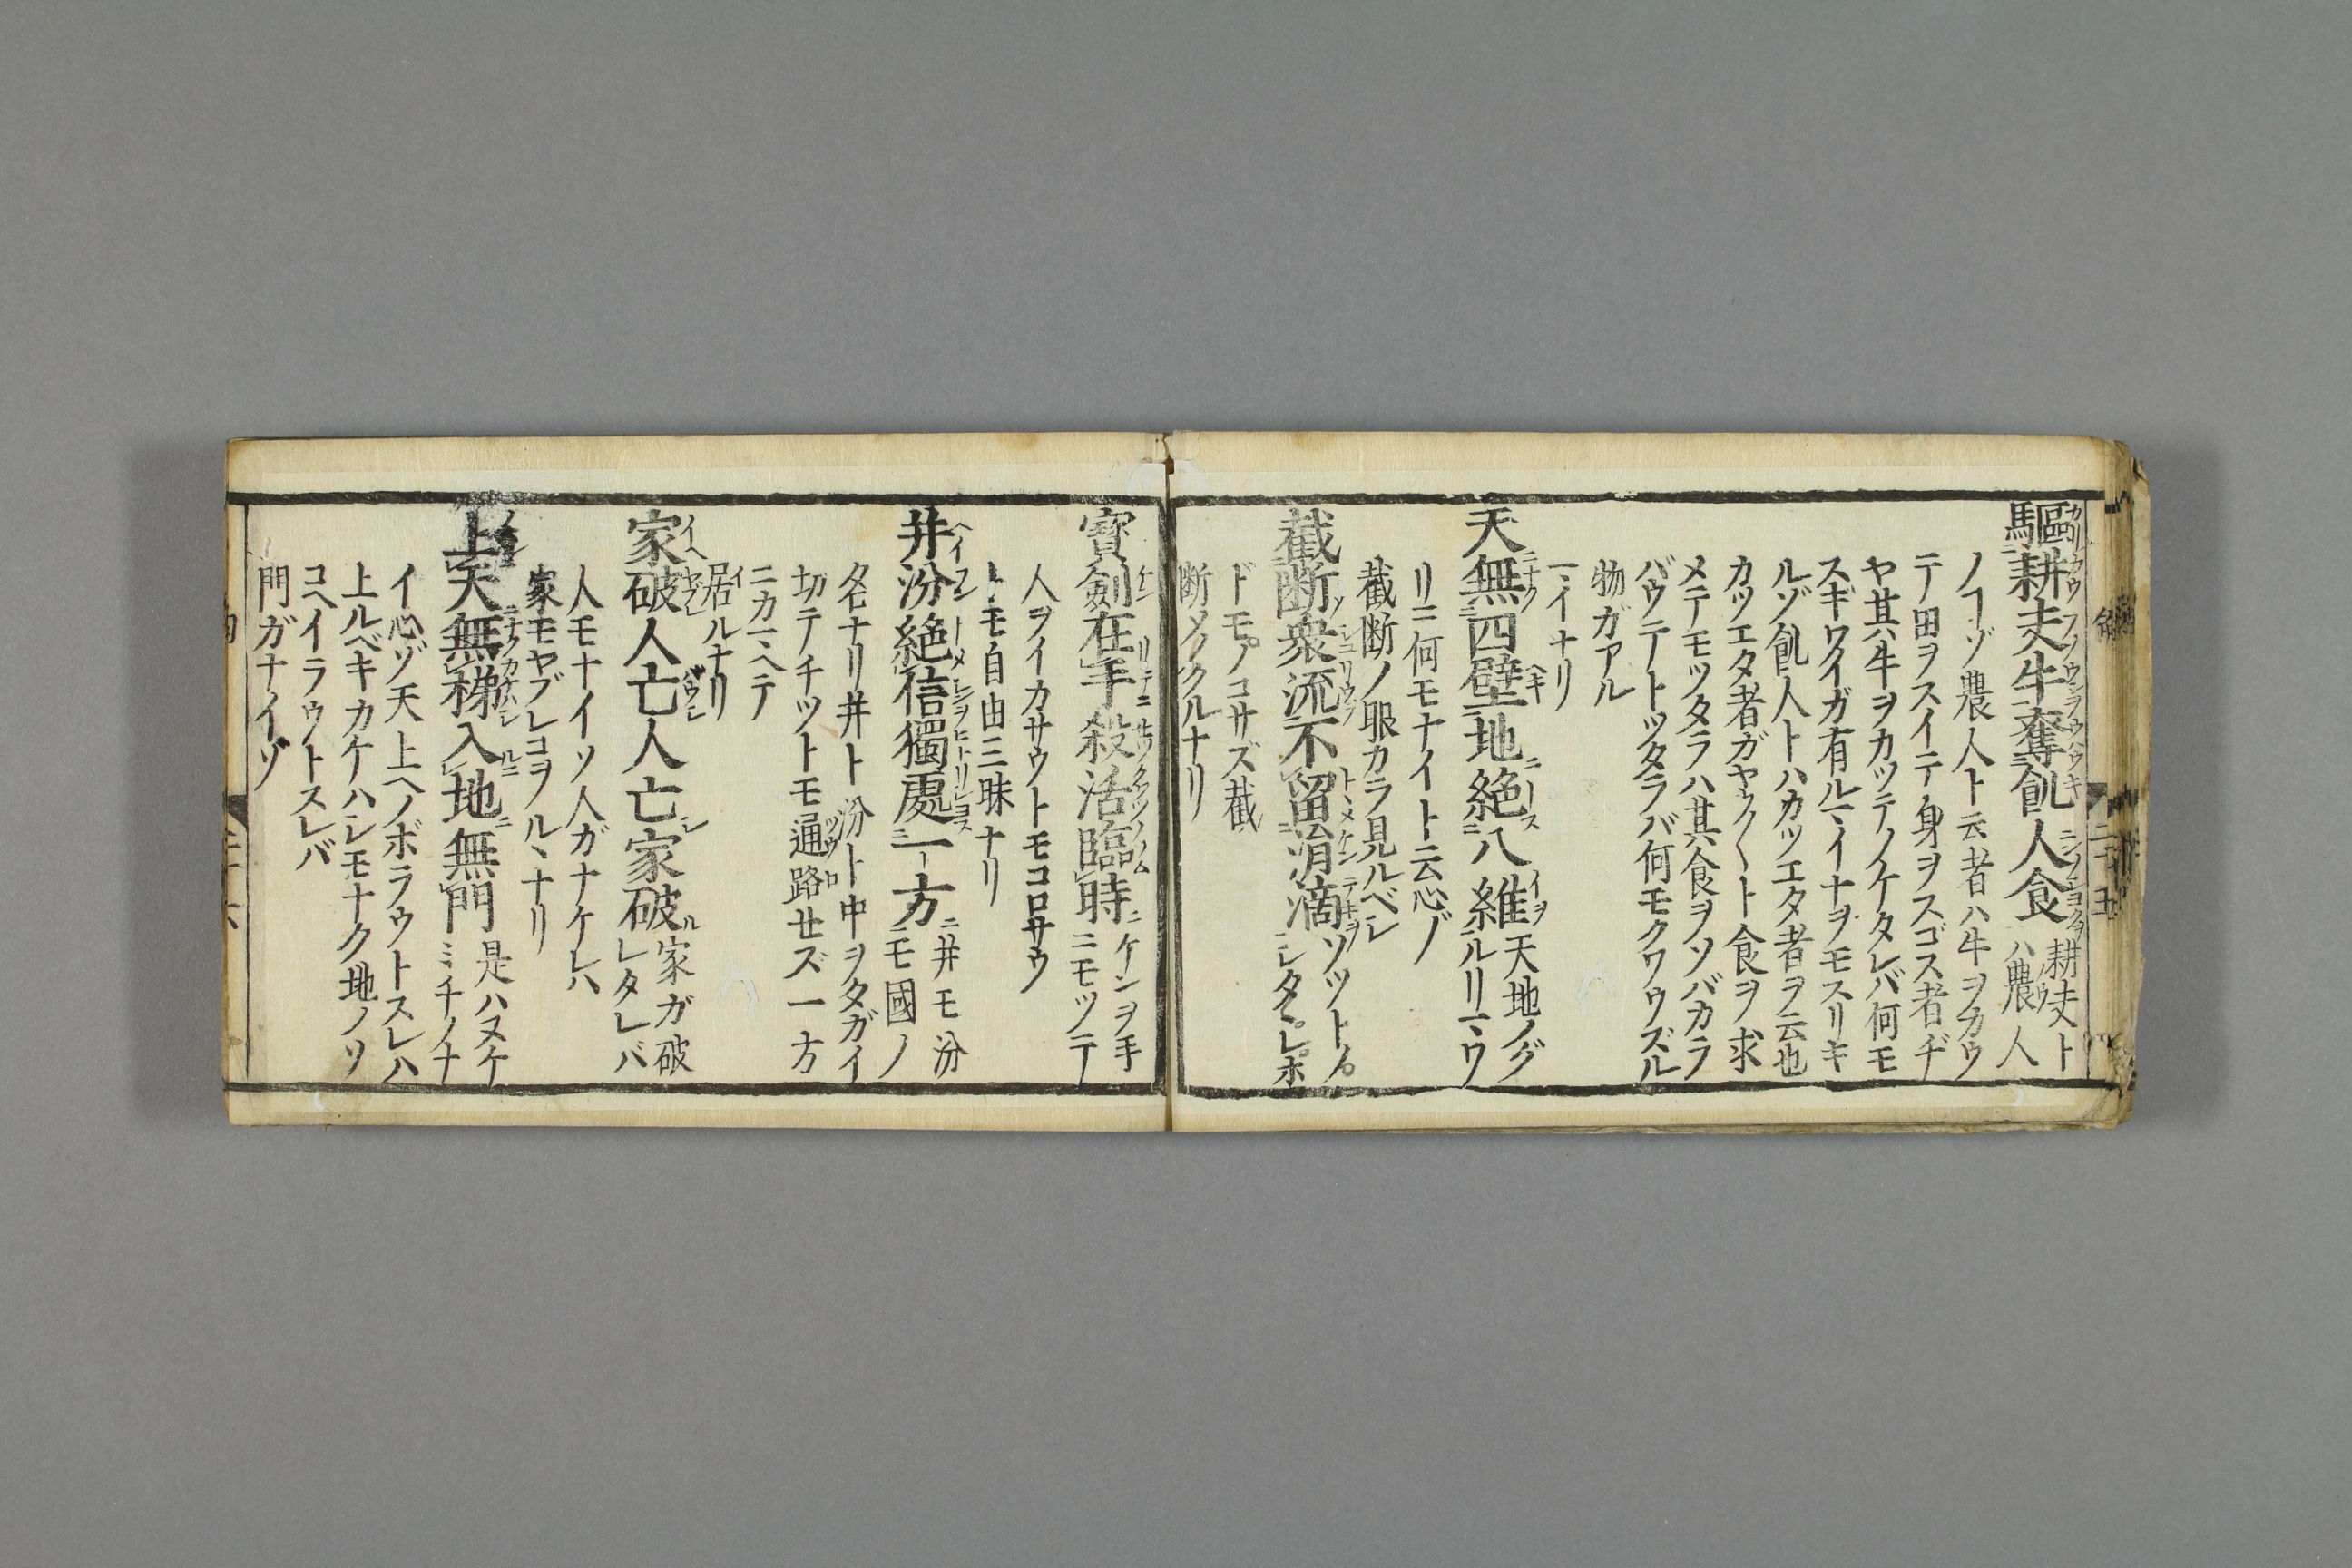 驅耕夫牛奪飢人食 耕夫ト
ハ農人
ノコゾ農人ト云者ハ牛ヲカウ
テ田ヲスイテ身ヲスゴス者ヂ
ヤ其牛ヲカツテノケタレバ何モ
スギワイガ有ルヽイナヲモスリキ
ルゾ飢人トハカツエタ者ヲ云也
カツエタ者ガヤウ〱ト食ヲ求
メテモツタラハ其食ヲソバカラ
バウテトツタラバ何モクワウズル
物ガアル
マイナリ
天無四壁地絶八維 天地ノグ
ルリマワ
リニ何モナイト云心ゾ
截断ノ眼カラ見ルベシ
截断衆流不留涓滴 ソツトノ
シタヽレホ
ドモノコサズ截
断メノクルナリ
寳劔在手殺活臨時 ケンヲ手
ニモツテ
人ヲイカサウトモコロサウ
トモ自由三昧ナリ
并汾絶信獨處一方 并モ汾
モ國ノ
名ナリ并ト汾ト中ヲタガイ
切テチツトモ通路セズ一方
ニカマヘテ
居ルナリ
家破人亡人亡家破 家ガ破
レタレバ
人モナイソ人ガナケレハ
家モヤブレコヲルヽナリ
上天無梯入地無門 是ハヌケ
ミチノナ
イ心ゾ天上ヘノボラウトスレハ
上ルベキカケハシモナク地ノソ
コヘイラウトスレバ
門ガナイゾ